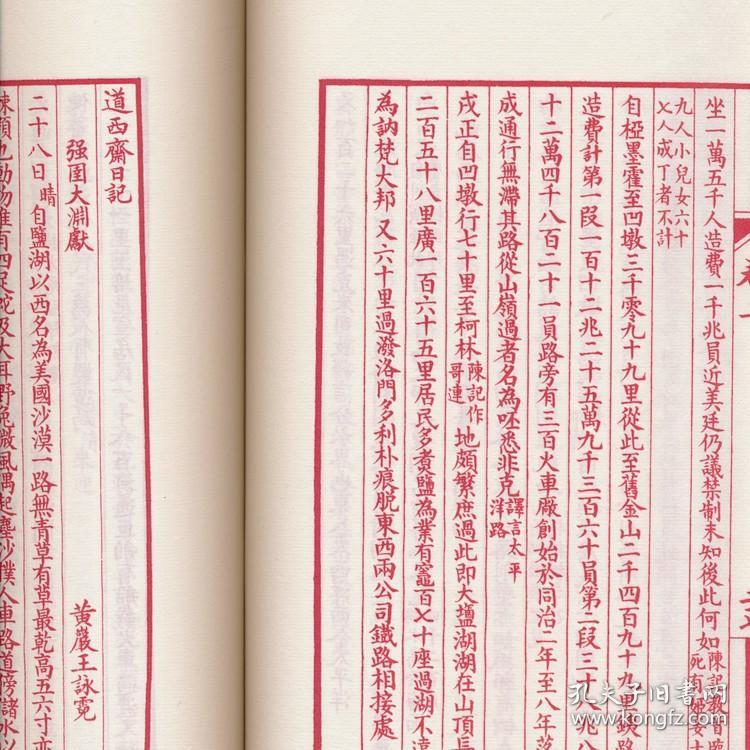 坐一萬五千人造費一千兆員近美廷仍議禁制未知後此何如陳記教
死有姬
九人小兒女六十
七人成丁者不計
自椏墨霍至凹墩三千零九十九里從此至舊金山二千四百九十九里鐵
造費計第一段一百十二兆二十五萬九千三百六十員第二段三十八兆八
十二萬四千八百二十一員路旁有三百火車厰創始於同治二年至八年
成通行無滯其路從山嶺過者名為呸悉非克譯言太平
洋路
戌正自凹墩行七十里至柯林陳記作
哥連地頗繁庶過此即大塩湖湖在山頂長
二百五十八里廣一百六十五里居民多煑鹽為業有竈百七十座過湖不遠
為訥梵大邦又六十里過潑洛門多利朴痕脫東西兩公司鐵路相接處
道西齋日記
强圉大淵獻
黃巖王詠霓
二十八日晴自鹽湖以西名為美國沙漠一路無青草有草最乾高五六寸
頼也動物惟有四足蛇及大耳野兔微風偶起塵沙撲人車路道傍諸水
卷一
孔夫子旧书网
www.kongfz.com